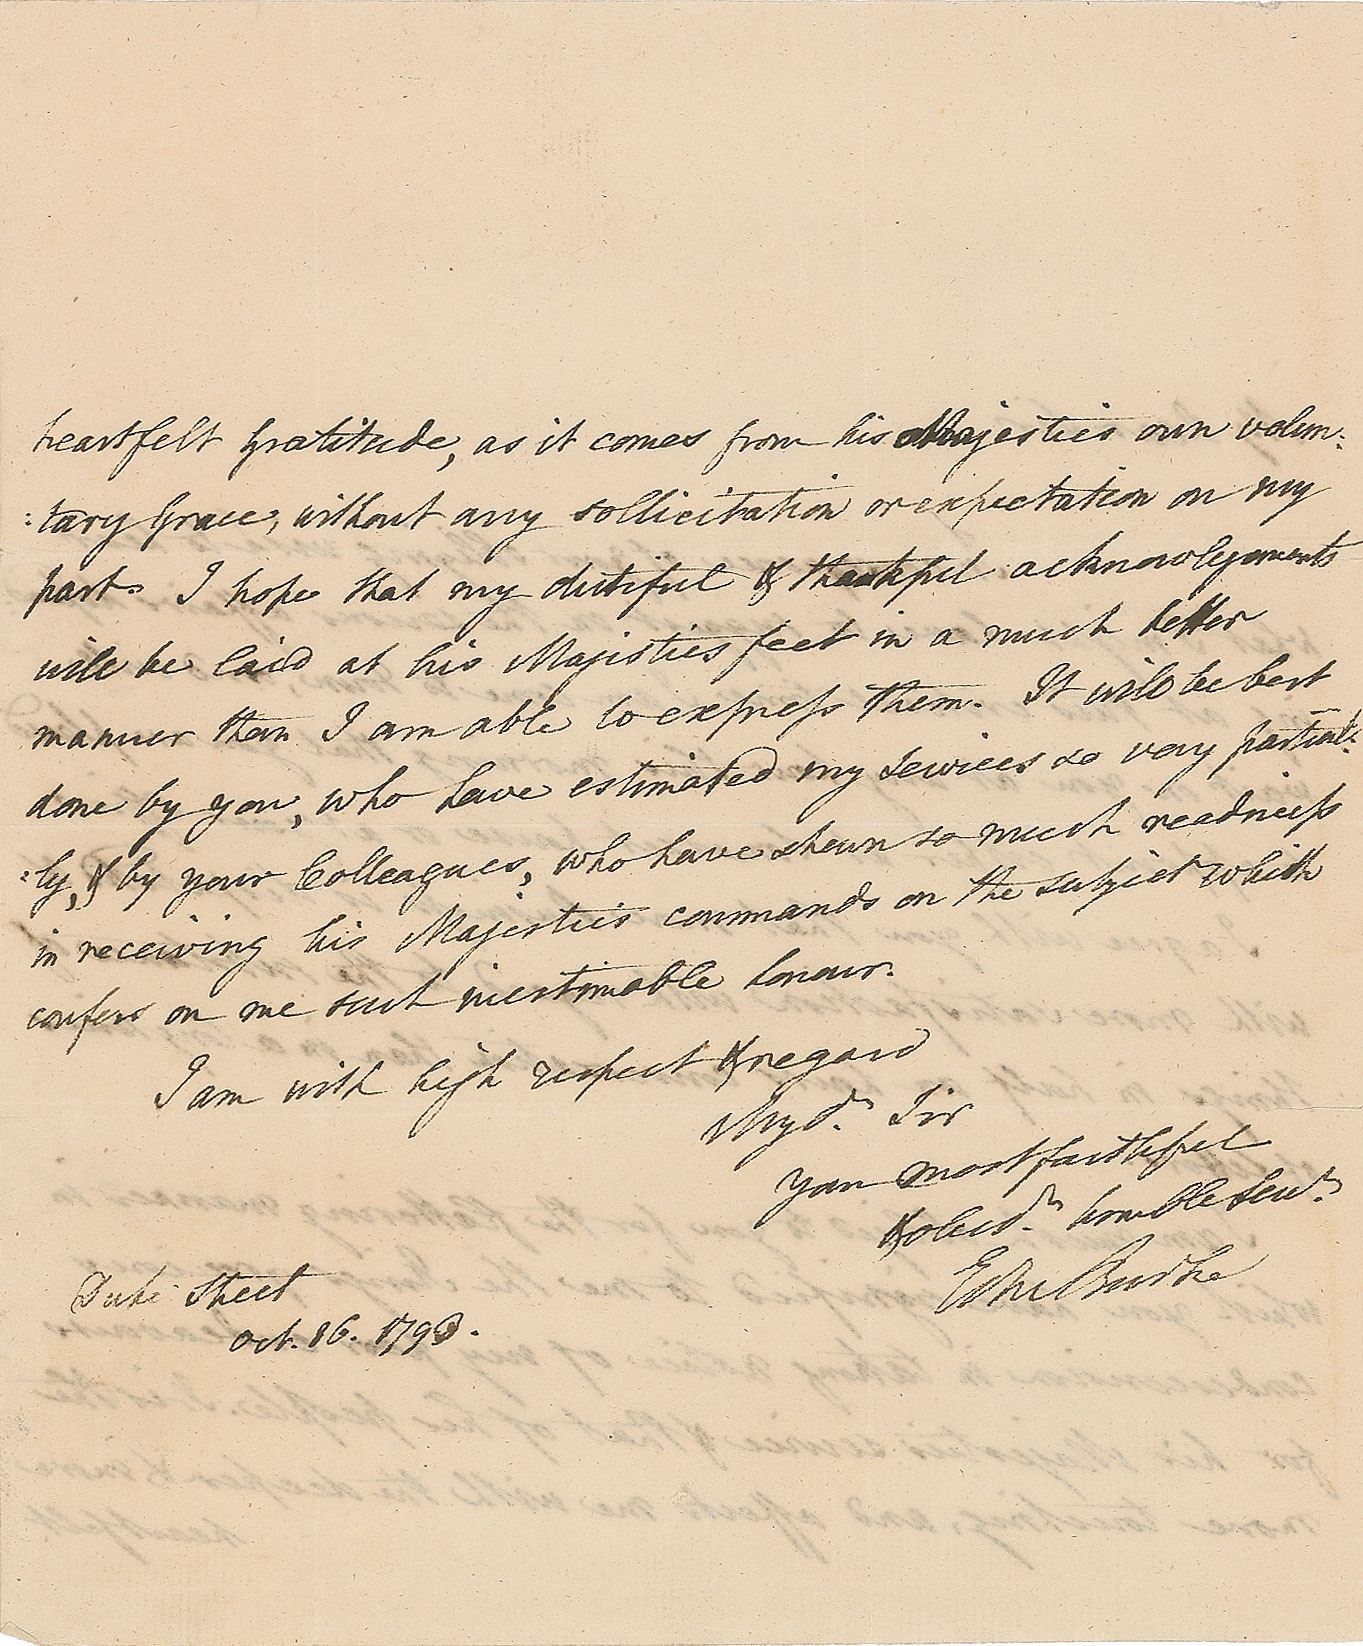 heartfelt Gratitude, as it comes from his Majesties own volun:
:tary Grace, without any sollicitation or expectation on my
part. I hope that my dutiful & thankful acknowlegements
will be laid at his Majesties feet in a much better
manner than I am able to express them. It will be best
done by you, who have estimated my services so very partial:
:ly, & by your Colleagues, who have shewn so much readiness
in receiving his Majesties commands on the subject which
confers on me such inestimable honour.
I am with high respect & regard
My dr. Sir
your most faithful
& obedt. humble Servt.
Edm Burke
Duke Street
Oct. 16. 1793.